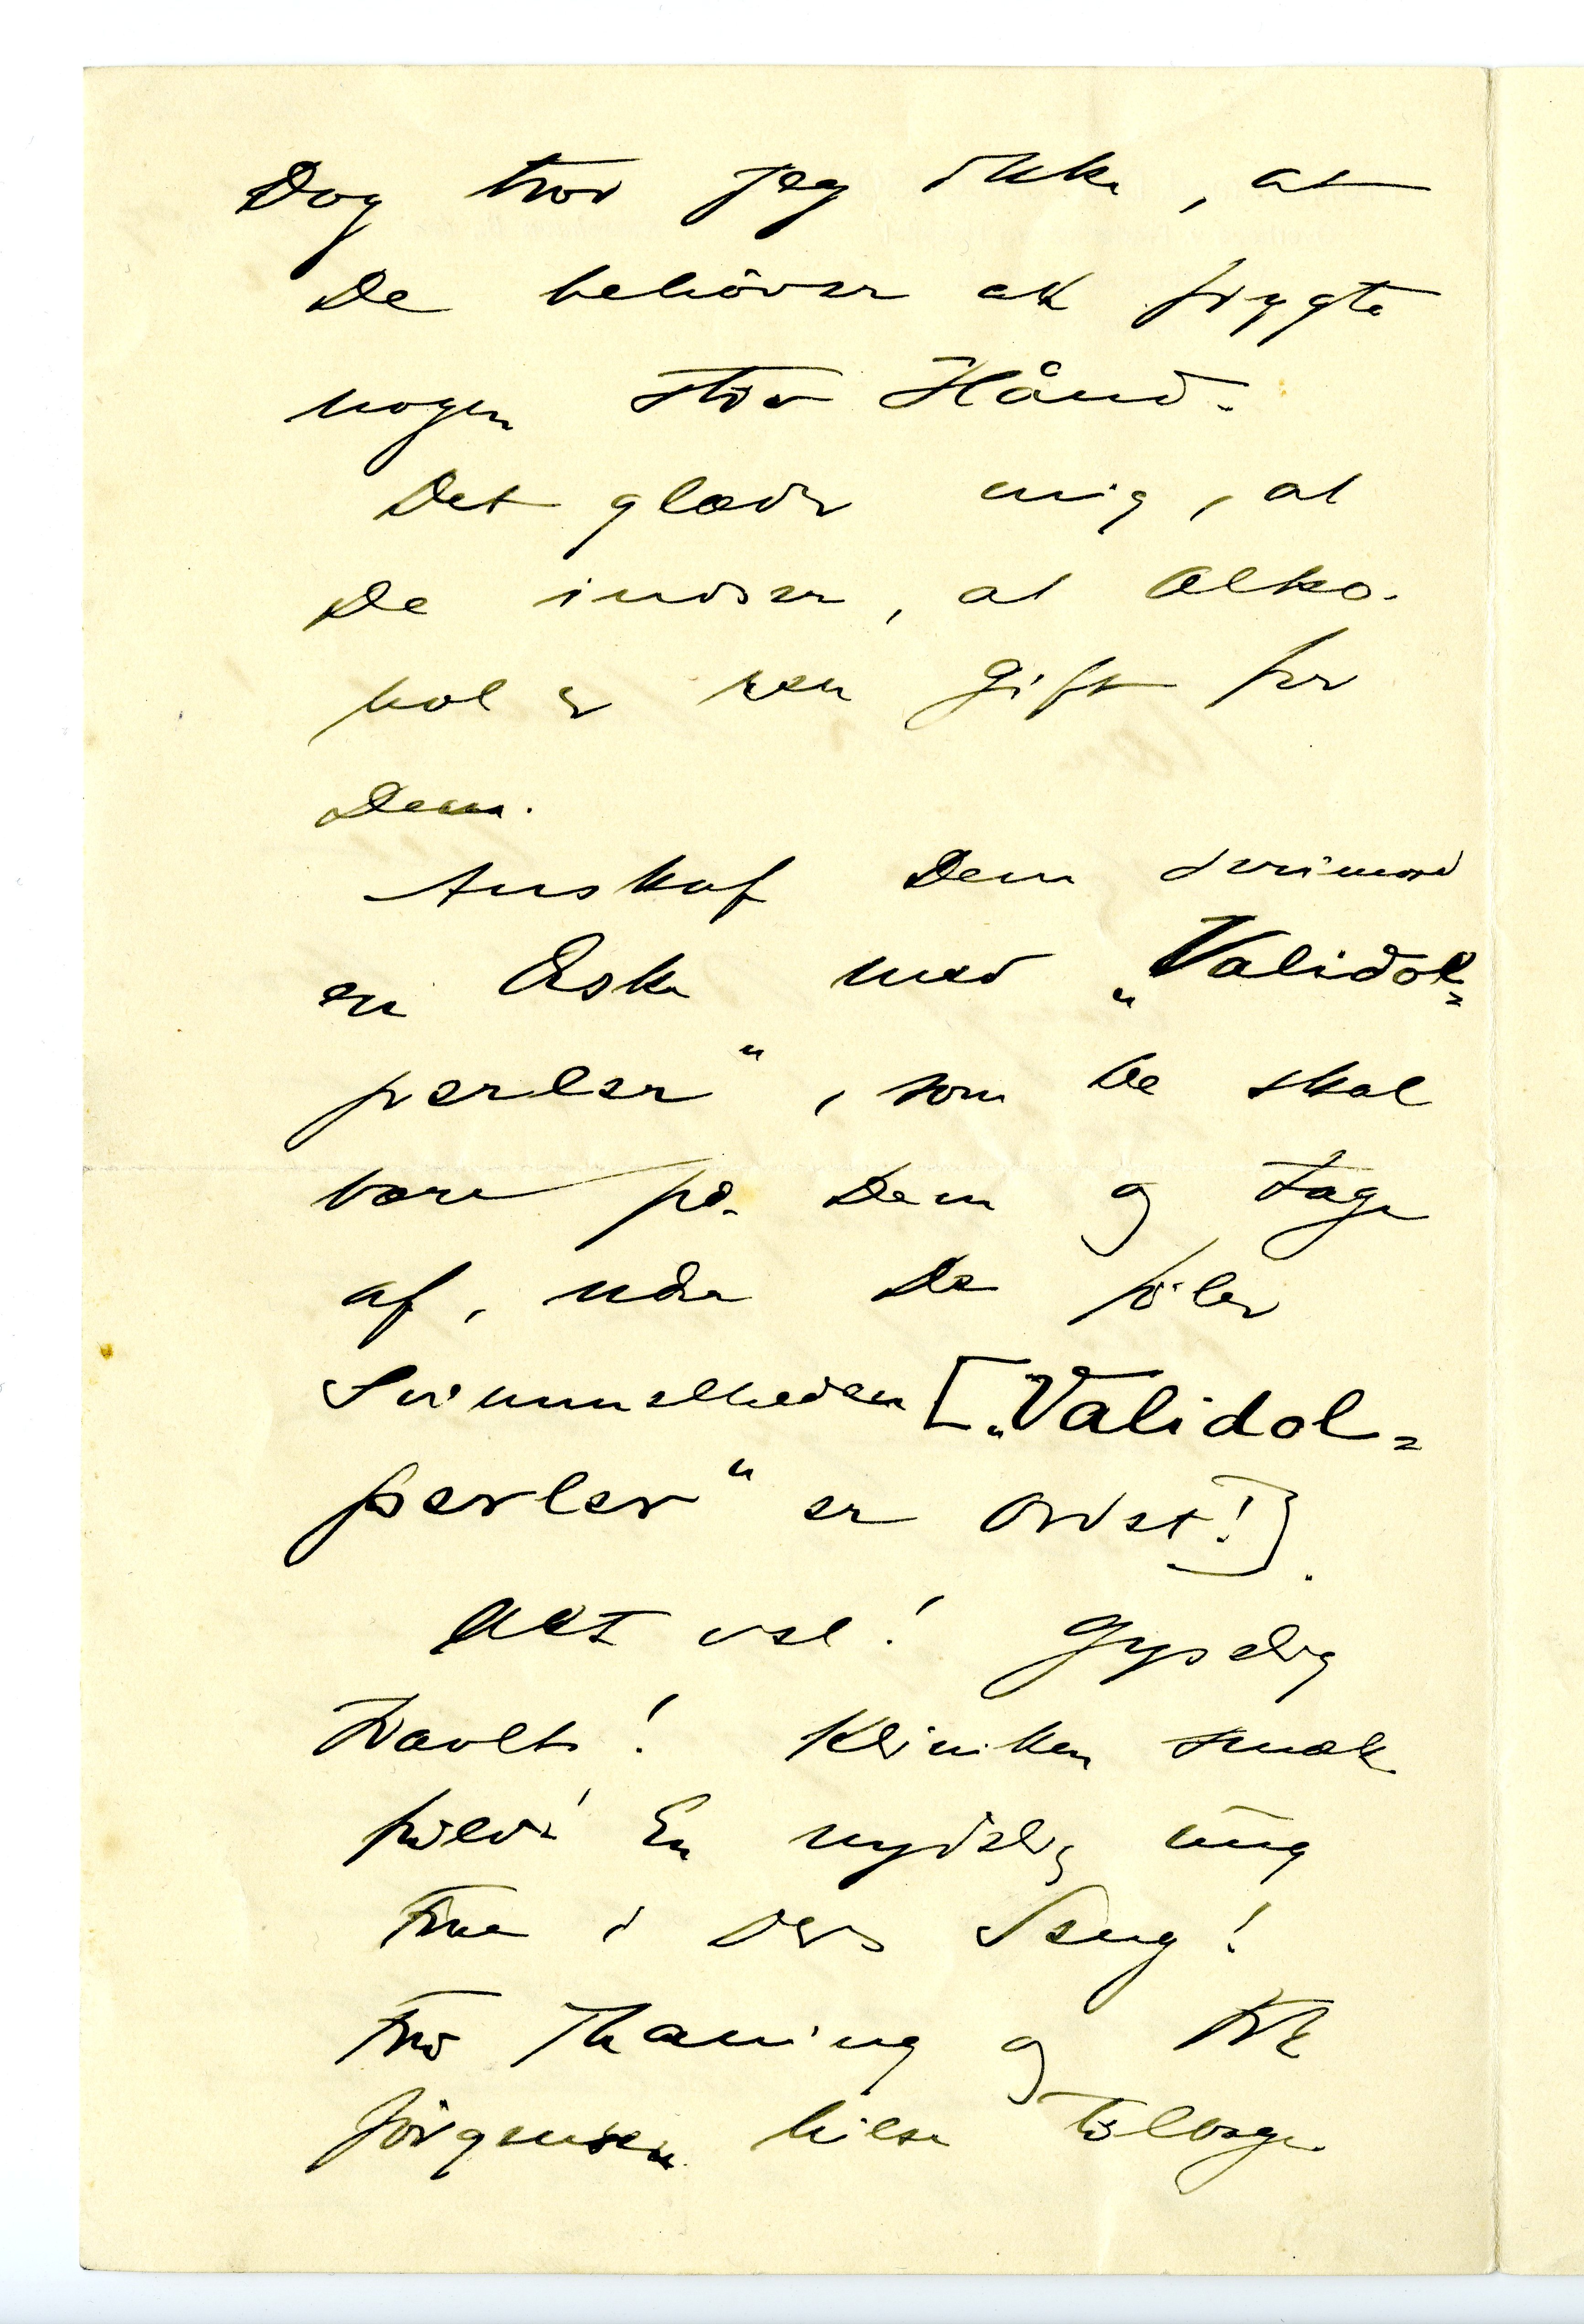 Dog tror jeg ikke, at
De behöver at frygte
nogen stor Hånd.
Det glæder mig, at
De indser, at Alko-
hol er ren Gift for
Dem.
Anskaf Dem
en Eske med „Validol=
perler“, som De skal
bære på Dem og tage
af, når De föler
Svimmelheden [„Validol=
perler“ er Ordet!].
Alt vel! Gyselig
travlt! Kliniken smæk
fuld! En nydelig ung
Frue i Deres Seng!
Frö Thaning og Frk
Jörgensen hilse